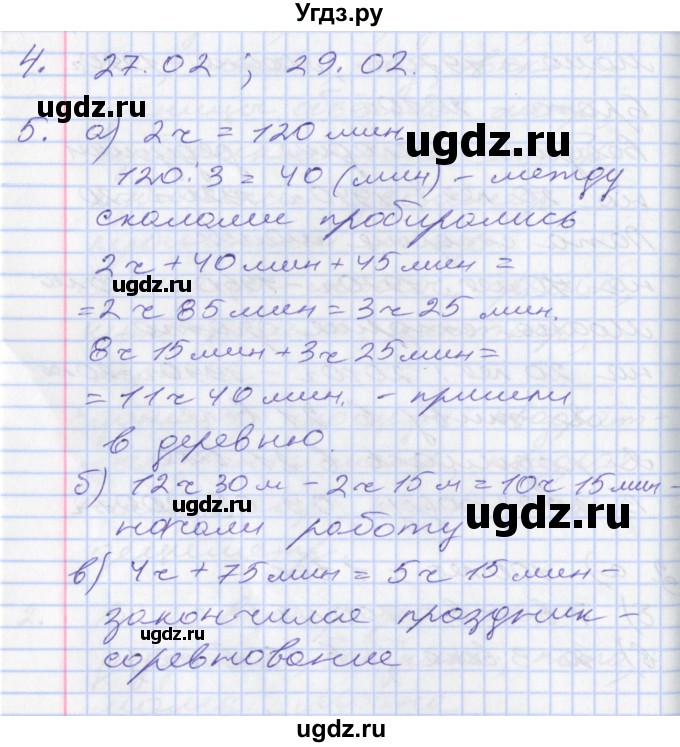 Угдз.ру
4. 27.02 ; 29.02.
ugdz.ru
5. а) 2ч = 120 мин
ugdz.ru
120:3 = 40 (мин) - между
скалами пробирались
2ч + 40 мин + 45 мин =
= 2ч 85 мин = 3ч 25 мин.
8ч 15 мин + 3ч 25 мин =
= 11ч 40 мин. - пришли
в деревню.
б) 12ч 30 м - 2ч 15 м = 10ч 15 мин -
ugdz.ru
ugdz.ru
начали работу
в) 4ч + 75 мин = 5ч 15 мин -
закончилае праздник -
ugdz.ru
соревнование
ugdz.ru
ugdz.ru